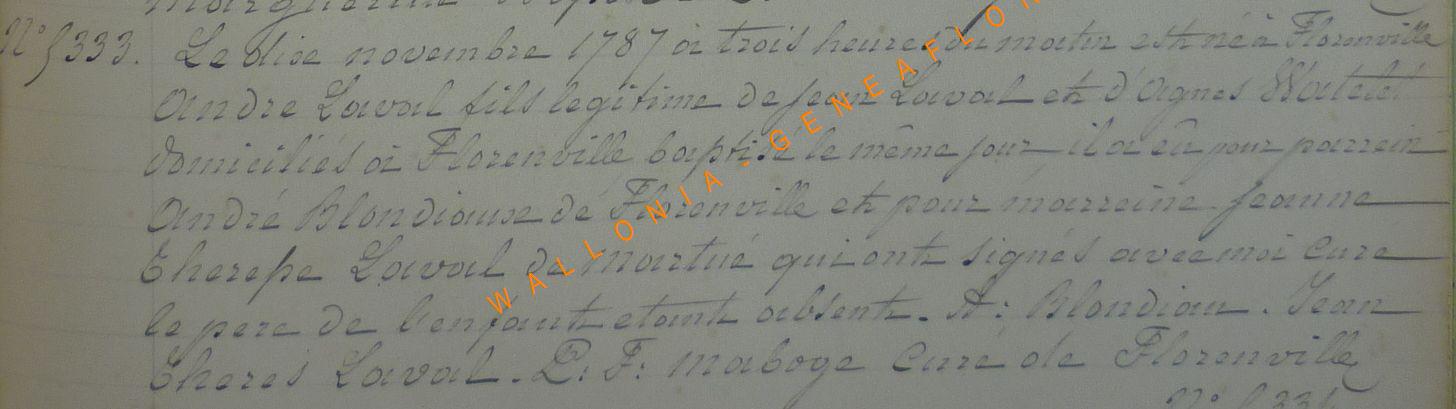 Marguerite
N° 5333. Le dixe novembre 1787 à trois heures du matin est né à Florenville
André Laval fils legitime de Jean Laval et d'Agnes Watelet
domiciliés à Florenville baptisé le même jour, il a eû pour parrein
André Blondiaux de Florenville et pour marreine Jeanne
Therese Laval de Martué qui ont signés avec moi Curé
le pere de l'enfant etant absent. A: Blondiau. Jean
Theres Laval. P. F: Maboge Curé de Florenville
WALLONIA - GENEAFLO